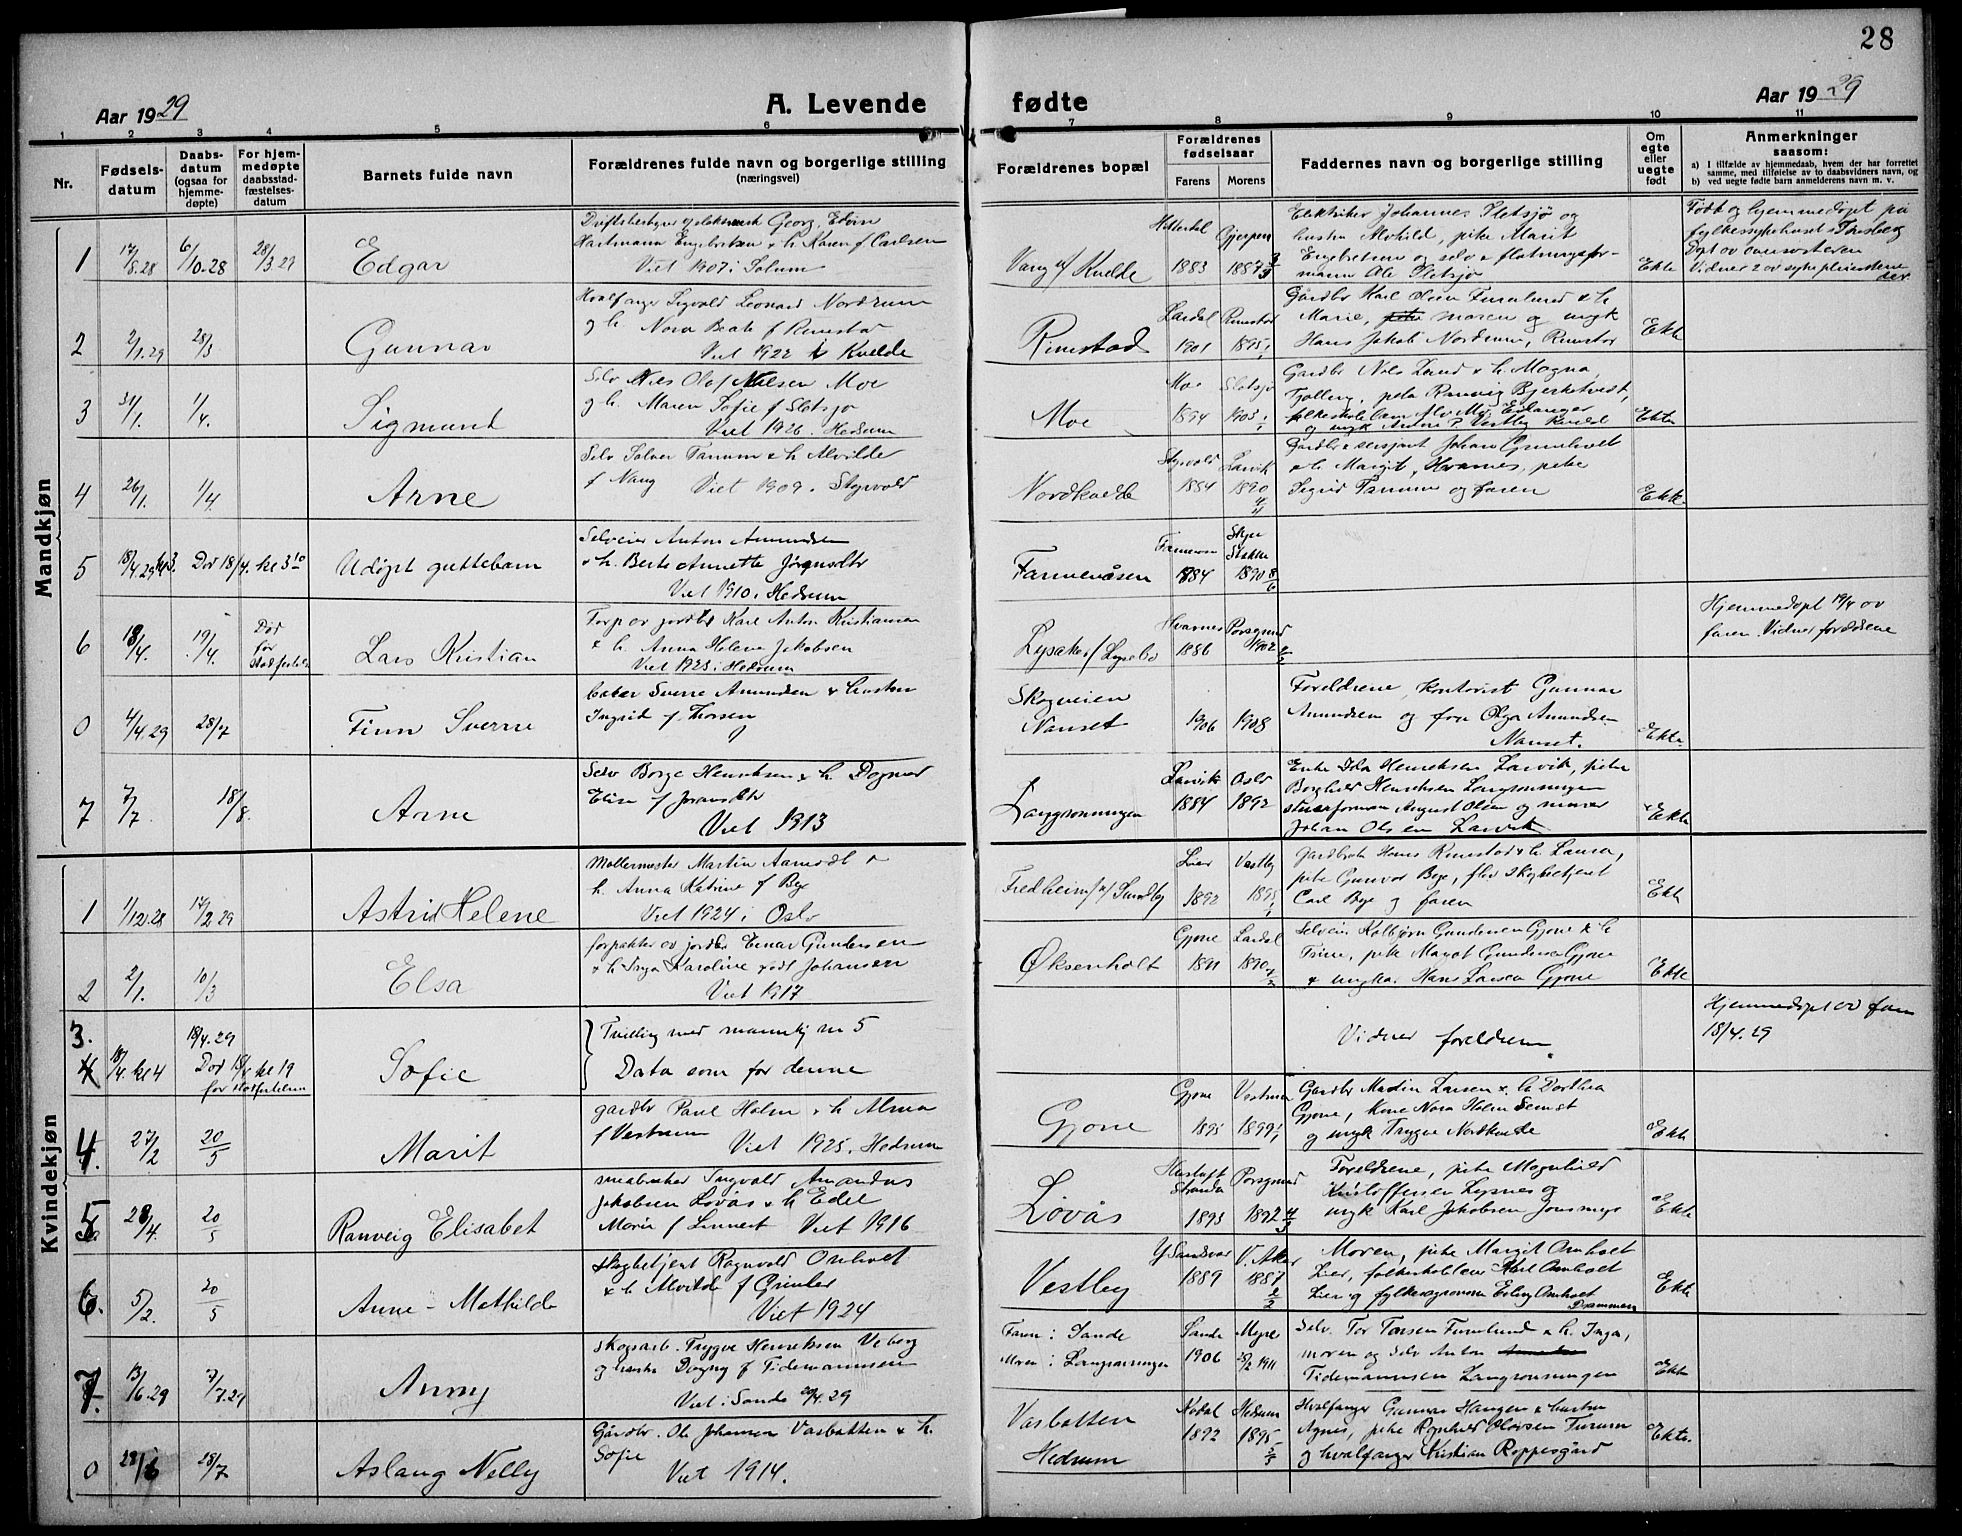 28
Aar 1929
A. Levende fødte
Aar 1929
1 2 3 4 5 6 7 8 9 10 11
Nr.
Fødsels-
datum
Daabs-
datum
(ogsaa for
hjemme-
døpte)
For hjem-
medøpte
daabsstad-
fæstelses-
datum
Barnets fulde navn
Forældrenes fulde navn og borgerlige stilling
(næringsvei)
Forældrenes bopæl
Forældrenes
fødselsaar
Farens Morens
Faddernes navn og borgerlige stilling
Om
egte
eller
uegte
født
Anmerkninger
saasom:
a) I tilfælde av hjemmedaab, hvem der har forrettet
samme, med tilføielse av to daabsvidners navn, og
b) ved uegte fødte barn anmelderens navn m. v.
Mandkjøn
1 17/8.28 6/10.28 28/3 29 Edgar
Georg Edvin
Hartmann Engebretsen & h. Karen f. Carlsen
Viet 1907 i Solum
Vang Kvelde
Hitterdal Gjerpen
1883 1887
Elektriker Johannes Sletsjø og
hustru Alvhild, pike Marit
Engebretsen og
mann Ole Sletsjø
Ekte
Født og hjemmedøpt på
fylkessykehuset i Tønsberg
Døpt av oversøsteren
Vidner 2 av sykepleierskene
der
2 2/1.29 28/3 Gunnar
Hvalfanger Sigvald Leonard Nordrum
og h. Nora Beate f. Rimestad
Viet 1922 i Kvelde
Rimestad
Lardal Rimestad
1901 1895
Gårdbr Karl Olsen Furulund & h.
Marie, moren og ungk
Hans Jakob Nordrum, Rimestad
Ekte
3 31/1. 1/4. Sigmund
Selv Nils Olaf Nilsen Moe
og h. Maren Sofie f Sletsjø
Viet 1926 i Hedrum
Moe
Moe Sletsjø
1894 1903
Gardbr Nils Lund & h. Magna,
Tjølling, pike Ranveig Bjerketvedt,
og ungk Anton P. Vestby Kvelde
Ekte
4 26/1. 1/4. Arne
Selv Tanum & h. Alvilde
f Nang Viet 1909 i Styrvold
Nordkvelde
Styrvold Larvik
1884 1890
Gardbr & sersjant Johan
& h. Margit, Hvarnes, pike
Sigrid Tanum og faren
Ekte
5 18/4.29 Død 18/4. kl 3 10 Udøpt guttebarn
Selveier Anton Amundsen
& h. Berte Annette Jørgensdtr
Viet 1910 i Hedrum
Farmenåsen
1884 1890 8/6
6 18/4. 19/4. Død
før
stadfestelse
Lars Kristian
Forp av jordbr Karl Anton Kristiansen
& h. Anna Helene Jakobsen
Viet 1923 i Hedrum
Lysaker / Lysebo
Hvarnes Porsgrund
1886 1902
Hjemmedøpt 19/4 av
faren. Vidner foreldrene
0 4/4.29 28/7 Finn Sverre
Baker Sverre Amundsen & hustru
Ingrid f. Thorsen
Skogveien
Nanset
1906 1908
Foreldrene, kontorist Gunnar
Amundsen og fru Olga Amundsen
Nanset.
Ekte
7 7/7 18/8. Arne
Selv Borge Henriksen & h. Dagmar
Elise f Joransdtr
Viet 1913
Langrønningen
Larvik Oslo
1884 1892
Enke Ida Henriksen Larvik, pike
Borghild Henriksen Langrønningen
August Olsen og murer
Johan Olsen Larvik
Ekte
Kvindekjøn
1 1/12.28 17/2 29 Astrid Helene
Møllermester Martin Aamodt &
h. Anna Katrine f Bye
Viet 1924 i Oslo
Fredheim / Sundby
Lier Vestby
1892 1895
Gardbr Hans Rimestad & h. Laura,
pike Gunvor Bye, skogbetjent
Carl Bye og faren
Ekte
2 2/1. 10/3 Elsa
forpakter av jordbr Einar Gundersen
& h. Inga Karoline født Johansen
Viet 1917
Øksenholt
Gjone Lardal
1891 1890
Selveier Kolbjørn Gundersen Gjone & h.
Trine, pike Margot Gundersen Gjone
& ungka. Hans Larsen Gjone
Ekte
3. 18/4. kl 4 18/4.29
Død 18/4 kl 19
før stadfestelsen
Sofie
Tvilling med mannkj nr 5
Data som for denne
Vidner foreldrene
Hjemmedøpt av faren
18/4.29
4. 27/2 20/5 Marit
gardbr Paul Holm & h. Alma
f Vestrum Viet 1925 i Hedrum
Gjone
Gjone Vestrum
1895 1899
Gardbr Martin Larsen & h. Dorthea
Gjone, Kone Nora Holm
og ungk Trygve Nordkvelde
Ekte
5 28/4. 20/5 Ranveig Elisabet
småbruker Ingvald Amandus
Jakobsen Løvås & h. Edel
Marie f Linnert Viet 1916
Løvås
Porsgrund
1893 1892 4/3
Foreldrene, pike Magnhild
Kristoffersen Lysnes og
ungk Karl Jakobsen
Ekte
6. 5/2. 20/5 Anne-Mathilde
skogbetjent Ragnvald Omholt
& h. Alvilde f Grinder
Viet 1924
Vestby
Y Sandsvær V. Aker
1889 1887
Moren, pike Margit Omholt
Lier, folkeskolelærer Karl Omholt
Lier og fylkesagronom Erling Omholt
Drammen
Ekte
7. 13/6.29 7/7.29 Anny
Skogsarb. Trygve Henriksen Veborg
og hustru Dagny f Tidemannsen
Viet i Sande 20/4.29
Faren i Sande
Moren i Langrønningen
Sande
1906 1911
Selv. Tor Torsen Furulund & h. Inga,
moren og Selv Anton
Tidemannsen Langrønningen
Ekte
0 28/7 Aslaug Nelly
Gårdbr. Ole Johansen Vasbotten & h.
Sofie Viet 1914.
Vasbotten
Hedrum
Hedrum
1892 1895
Hvalfanger Gunnar Hangen & hustru
Agnes, pike Ragnhild Olavsen Furum
og hvalfanger Kristian Roppesgård
Ekte.